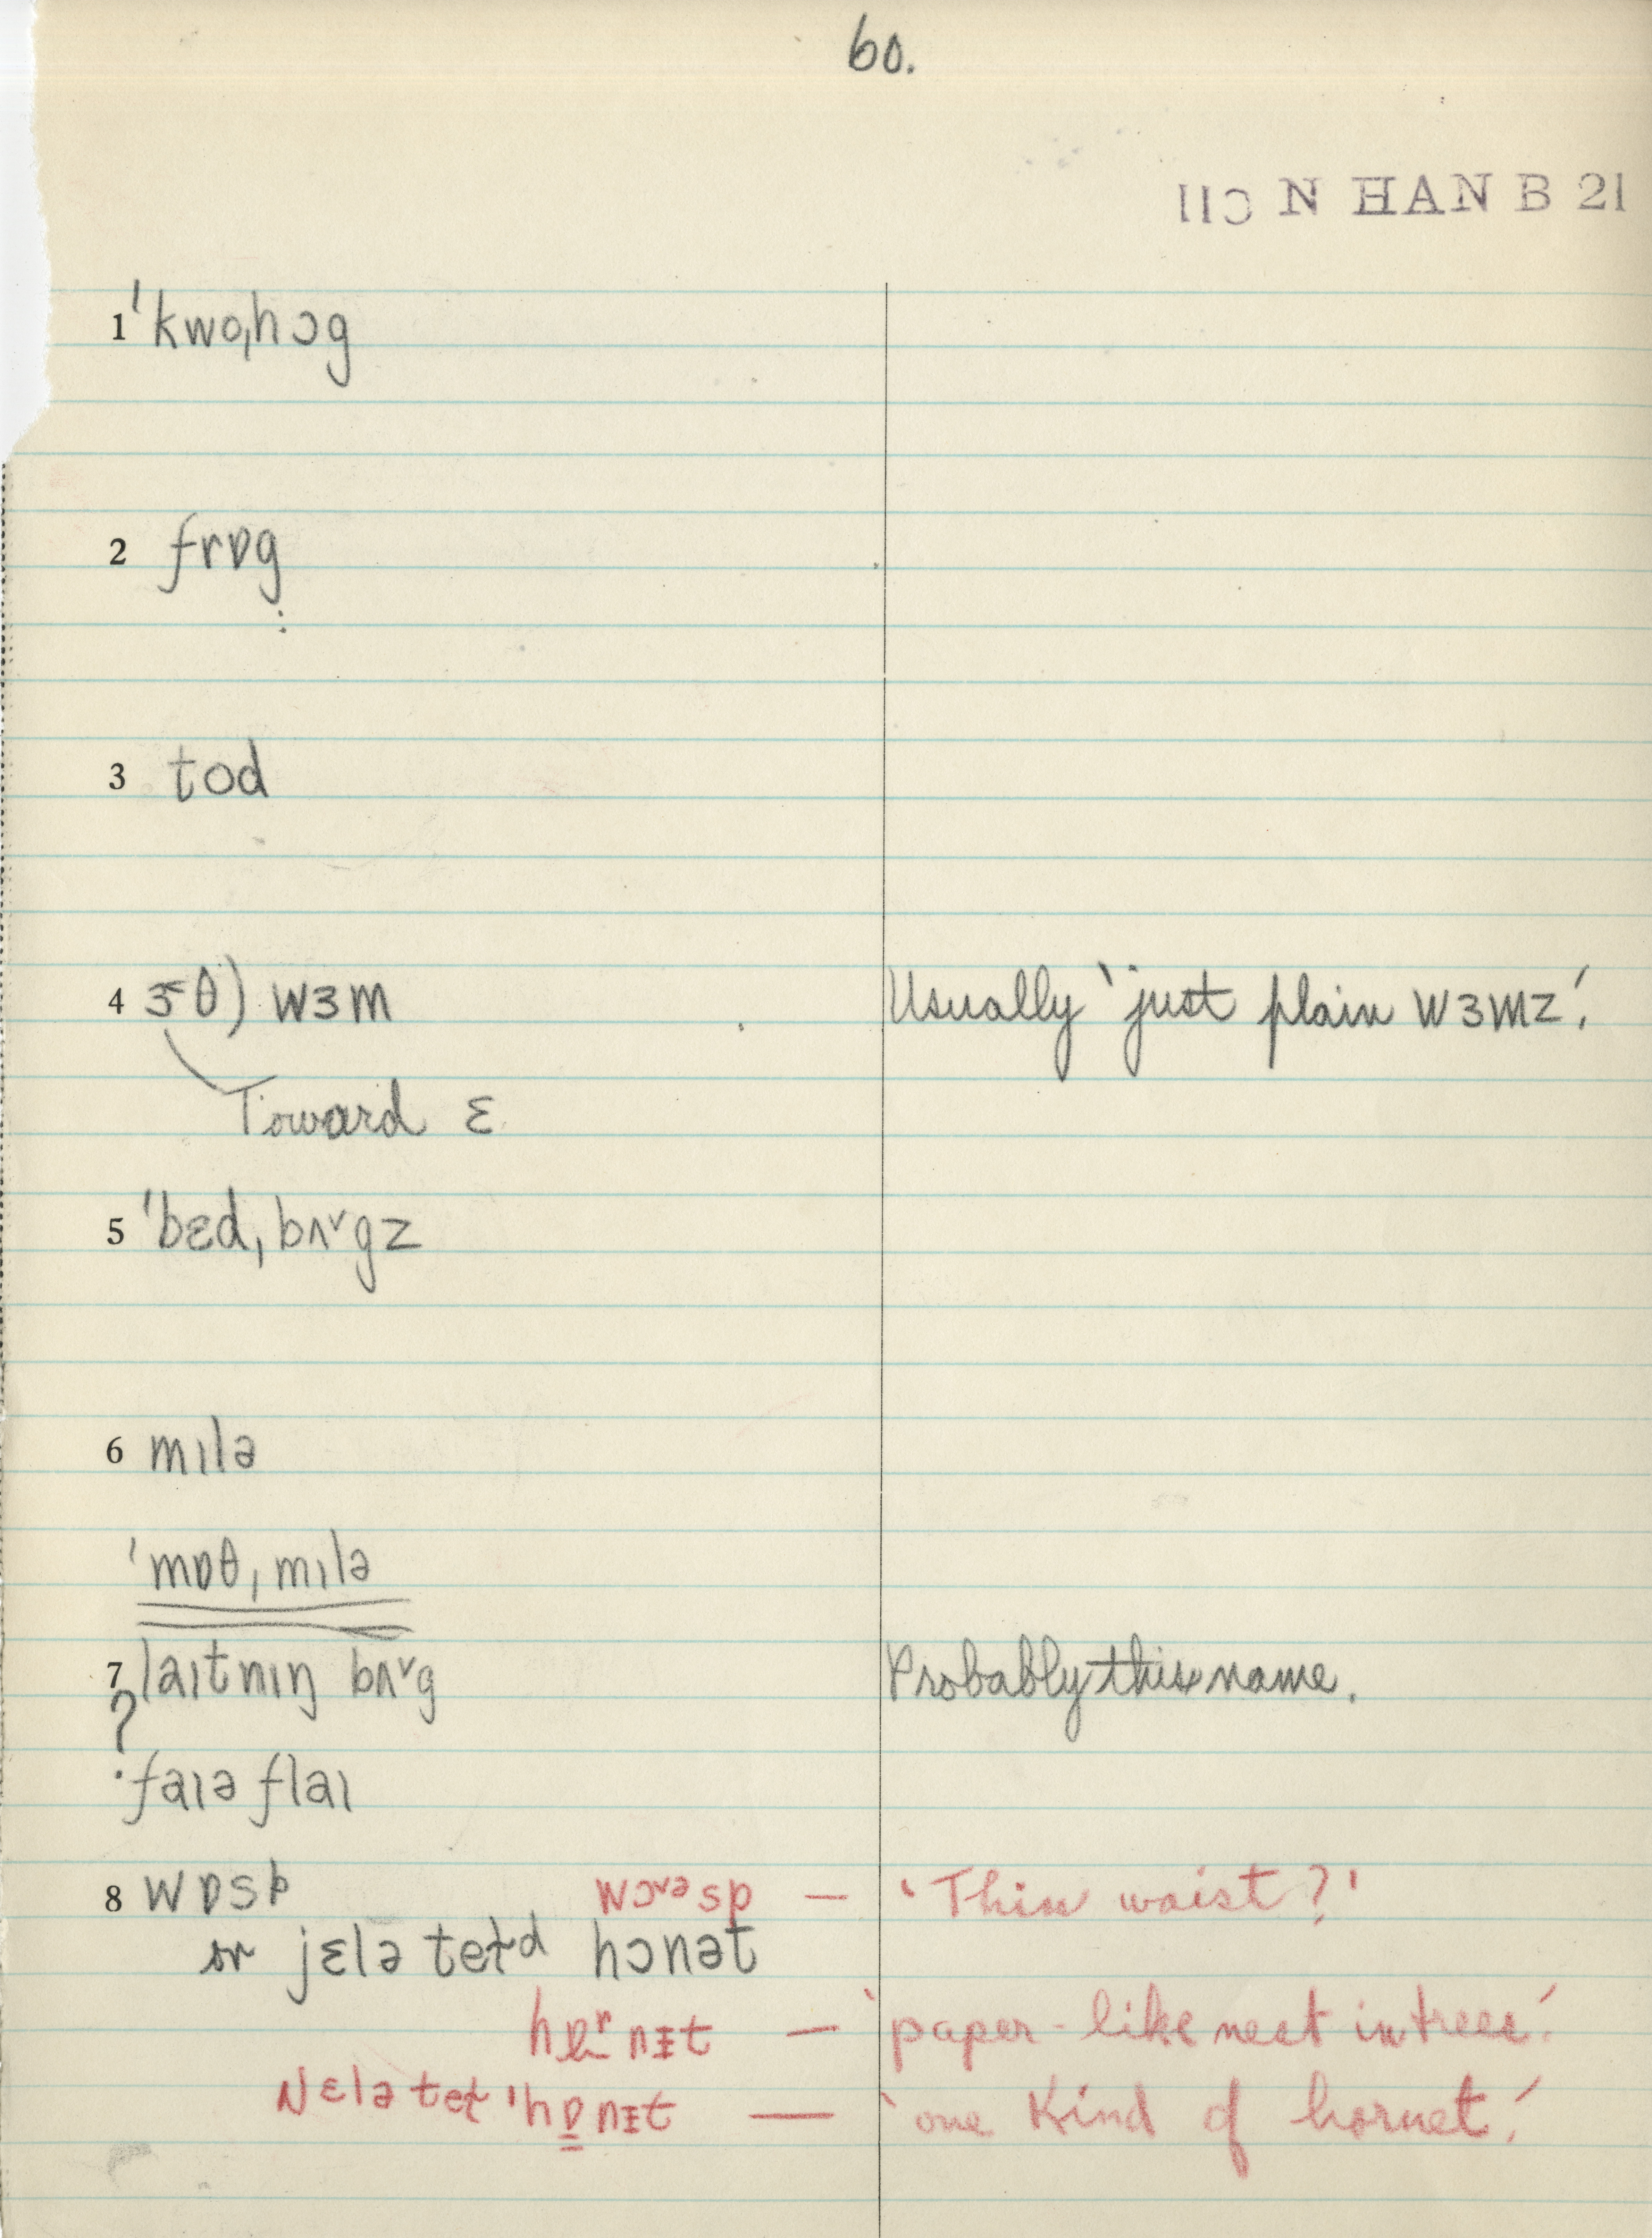 60.
N HAN B 21
1 ˈkwoˌhɔg
2 frɒg
3 tod
4 ɜ˂θ) wɜm Usually 'just plain wɜmz.'
Toward ɛ
5 ˈbɛdˌbʌ˅gz
6 mɪlə
ˈmɒθˌmɪlə
7 laɪtnɪŋ bʌ˅g Probably this name.
?
faɪə flaɪ
8 wɒsp wɔ˅ᵊsp — 'Thin waist?'
or jɛlə tet̬ᵈ hɔnət
hɒʳnɪ̵t — 'paper-like nest in trees.'
Nɛlə tet̬ ˈhɒ̠nɪ̵t — 'one kind of hornet.'